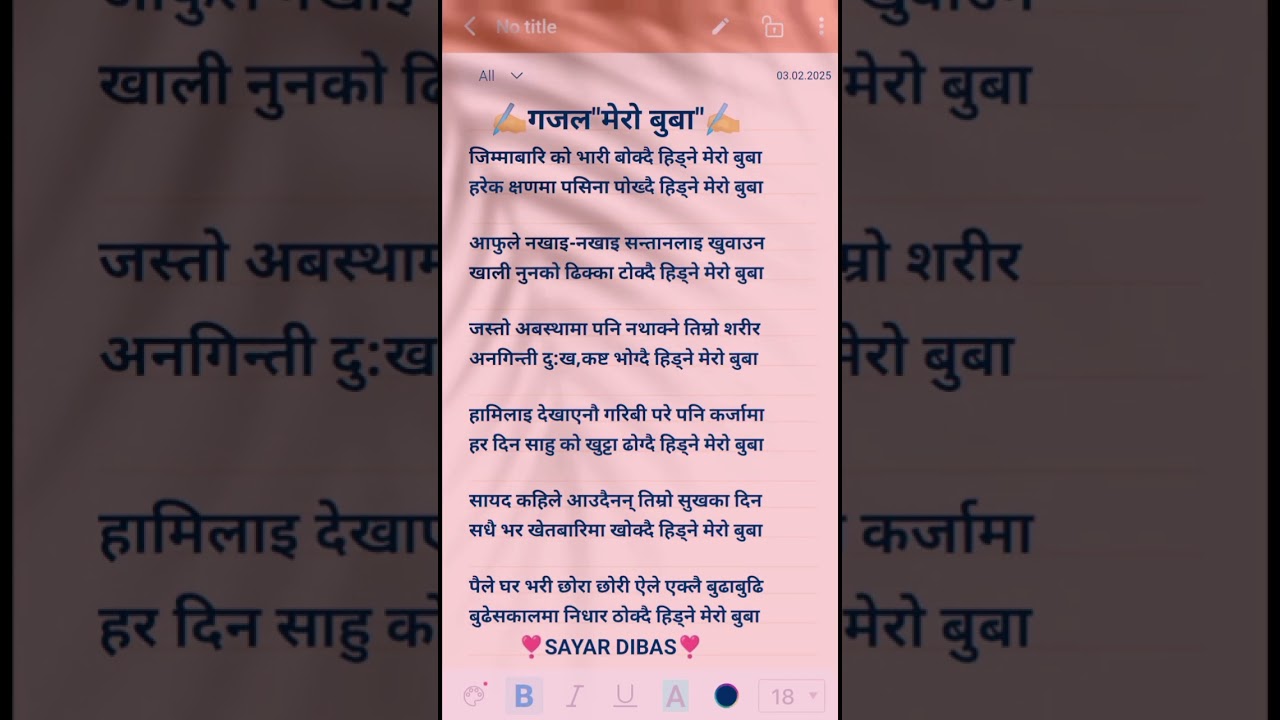 No title
All
03.02.2025
✍️गजल"मेरो बुबा"✍️
जिम्माबारि को भारी बोक्दै हिड्ने मेरो बुबा
हरेक क्षणमा पसिना पोख्दै हिड्ने मेरो बुबा
आफुले नखाइ-नखाइ सन्तानलाइ खुवाउन
खाली नुनको ढिक्का टोक्दै हिड्ने मेरो बुबा
जस्तो अबस्थामा पनि नथाक्ने तिम्रो शरीर
अनगिन्ती दु:ख,कष्ट भोग्दै हिड्ने मेरो बुबा
हामिलाइ देखाएनौ गरिबी परे पनि कर्जामा
हर दिन साहु को खुट्टा ढोग्दै हिड्ने मेरो बुबा
सायद कहिले आउदैनन् तिम्रो सुखका दिन
सधै भर खेतबारिमा खोक्दै हिड्ने मेरो बुबा
पैले घर भरी छोरा छोरी ऐले एक्लै बुढाबुढि
बुढेसकालमा निधार ठोक्दै हिड्ने मेरो बुबा
❣️SAYAR DIBAS❣️
B I U A 18